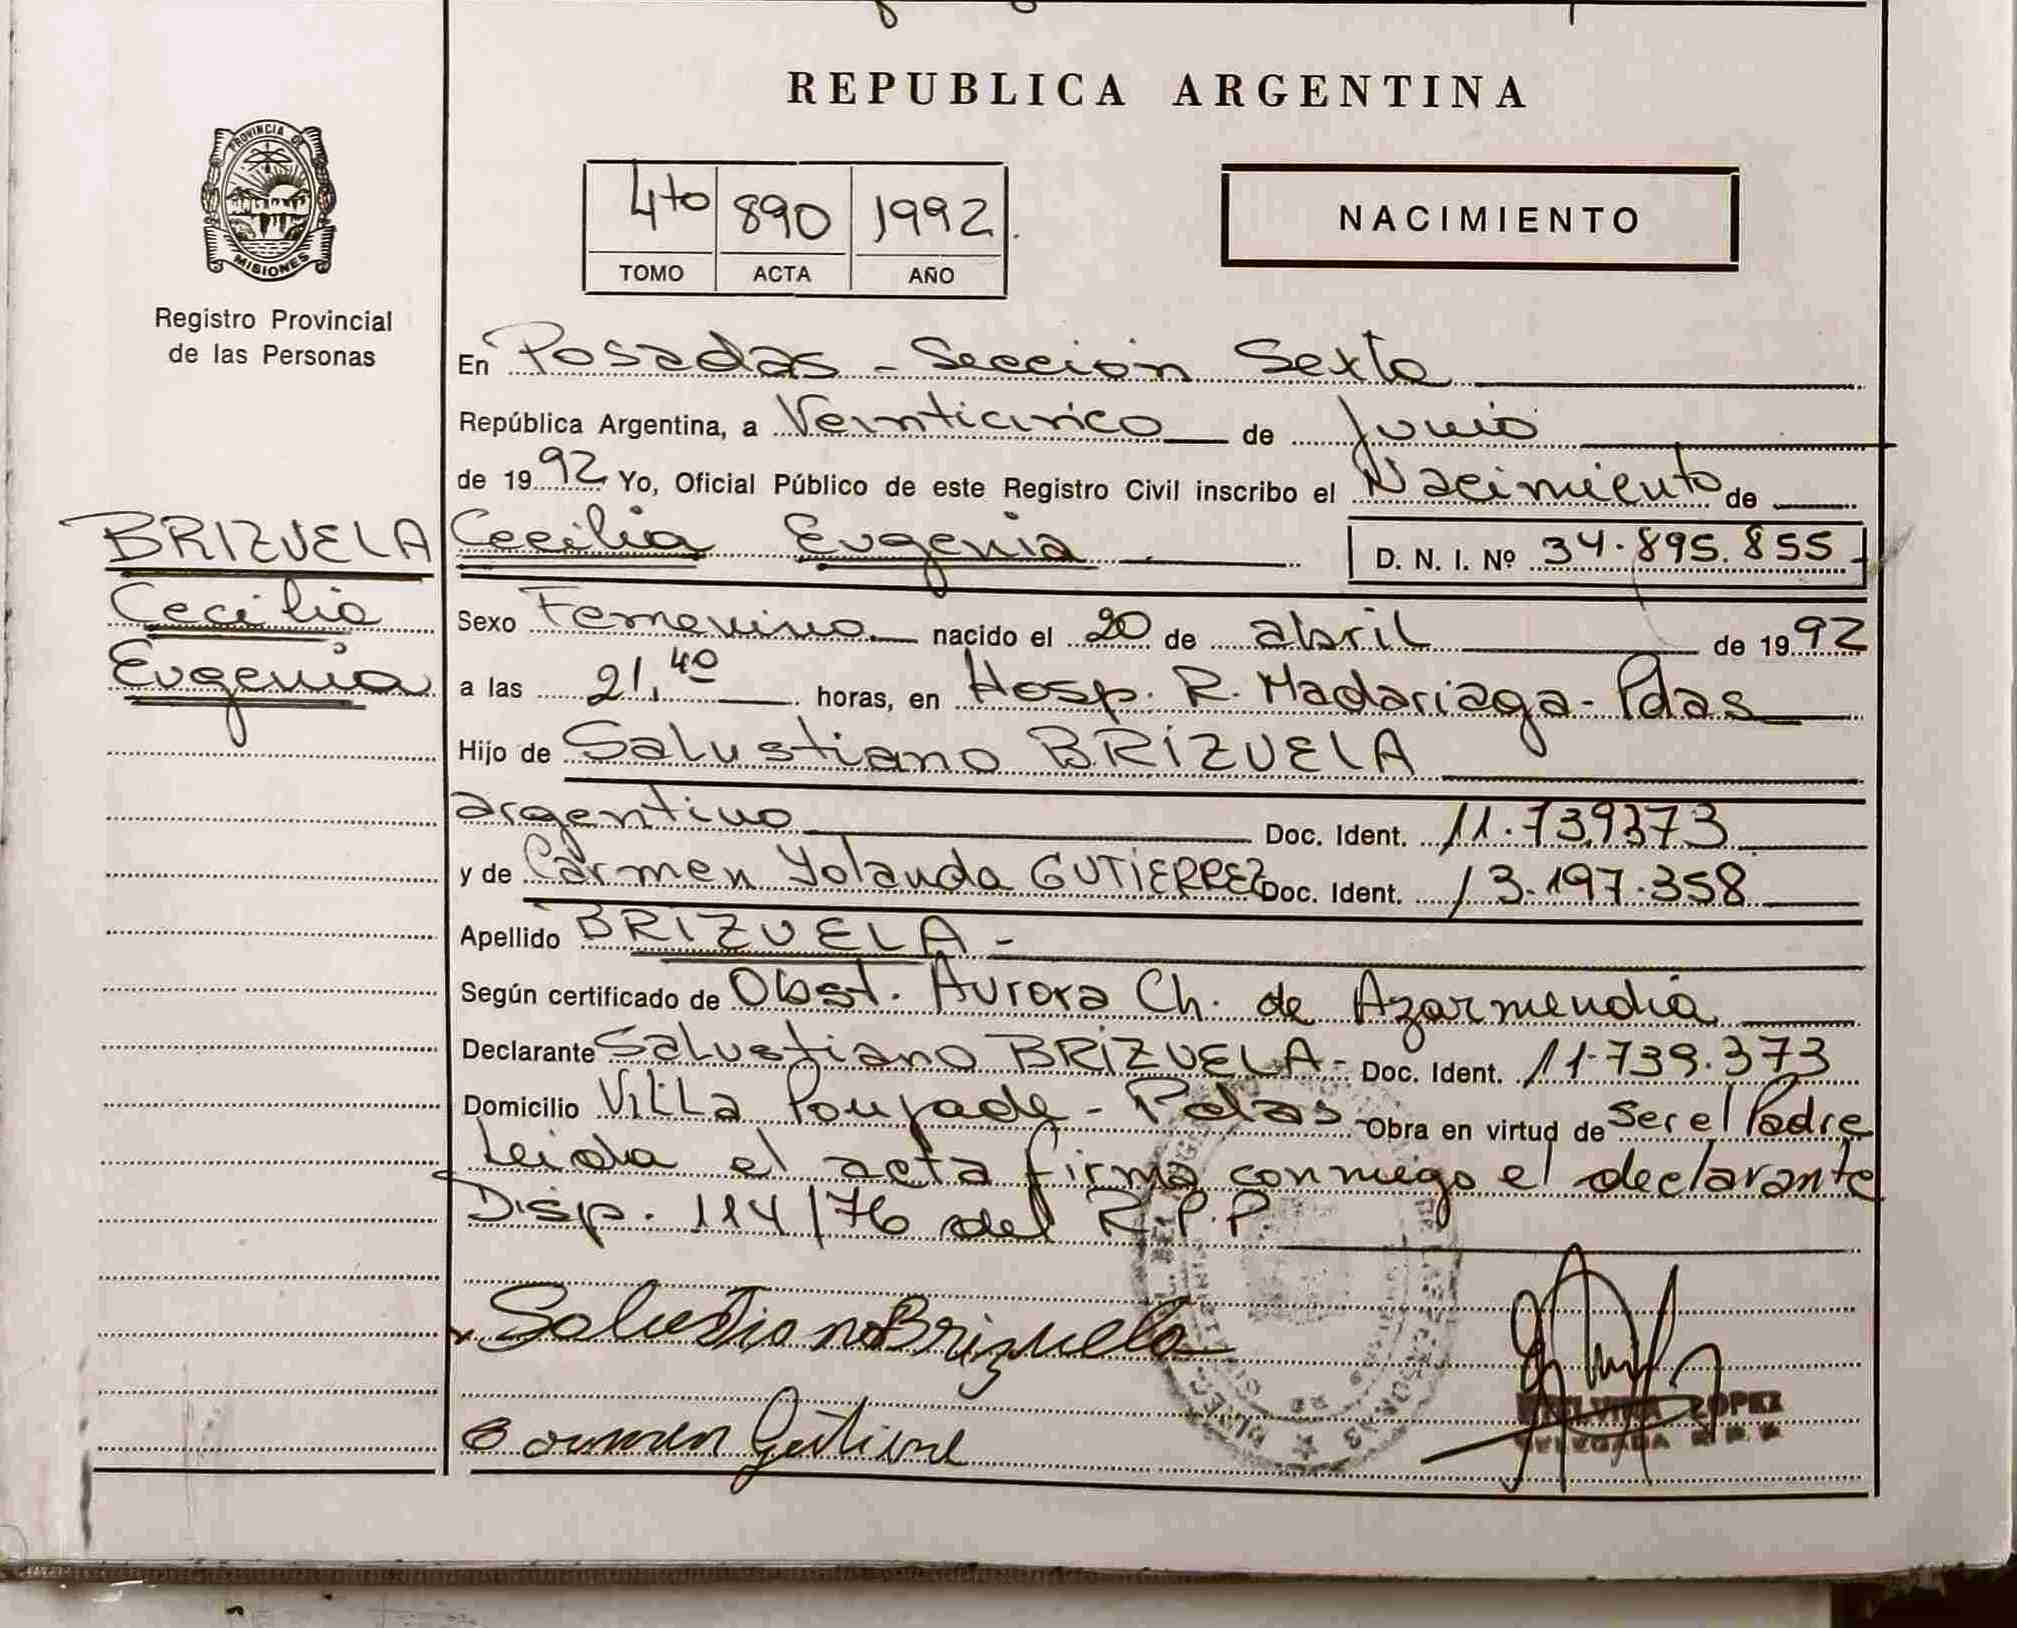 REPUBLICA ARGENTINA
PROVINCIA DE
MISIONES
Registro Provincial
de las Personas
4to 890 1992.
TOMO ACTA AÑO
NACIMIENTO
En Posadas - Sección Sexta
República Argentina, a Veinticinco de Junio
de 1992 Yo, Oficial Público de este Registro Civil inscribo el Nacimiento de
BRIZUELA
Cecilia
Eugenia
Cecilia Eugenia D. N. I. Nº 34.895.855
Sexo Femenino nacido el 20 de abril de 1992
a las 21,40 horas, en Hosp. R. Madariaga - Pdas
Hijo de Salustiano BRIZUELA
argentino Doc. Ident. 11.739373
y de Carmen Yolanda GUTIERREZ Doc. Ident. 13.197.358
Apellido BRIZUELA -
Según certificado de Obst. Aurora Ch. de Azarmendia
Declarante Salustiano BRIZUELA - Doc. Ident. 11.739.373
Domicilio Villa Poujade - Pdas Obra en virtud de Ser el Padre
Leida el acta firma conmigo el declarante
Disp. 114/76 del R.P.P.
Salustiano Brizuela
Carmen Gutierre
LOPEZ
DELEGADA